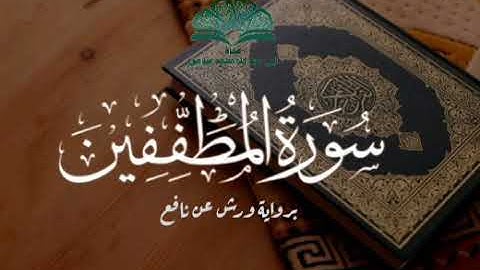 قناة
سُورَةُ الْمُطَفِّفِينَ
برواية ورش عن نافع